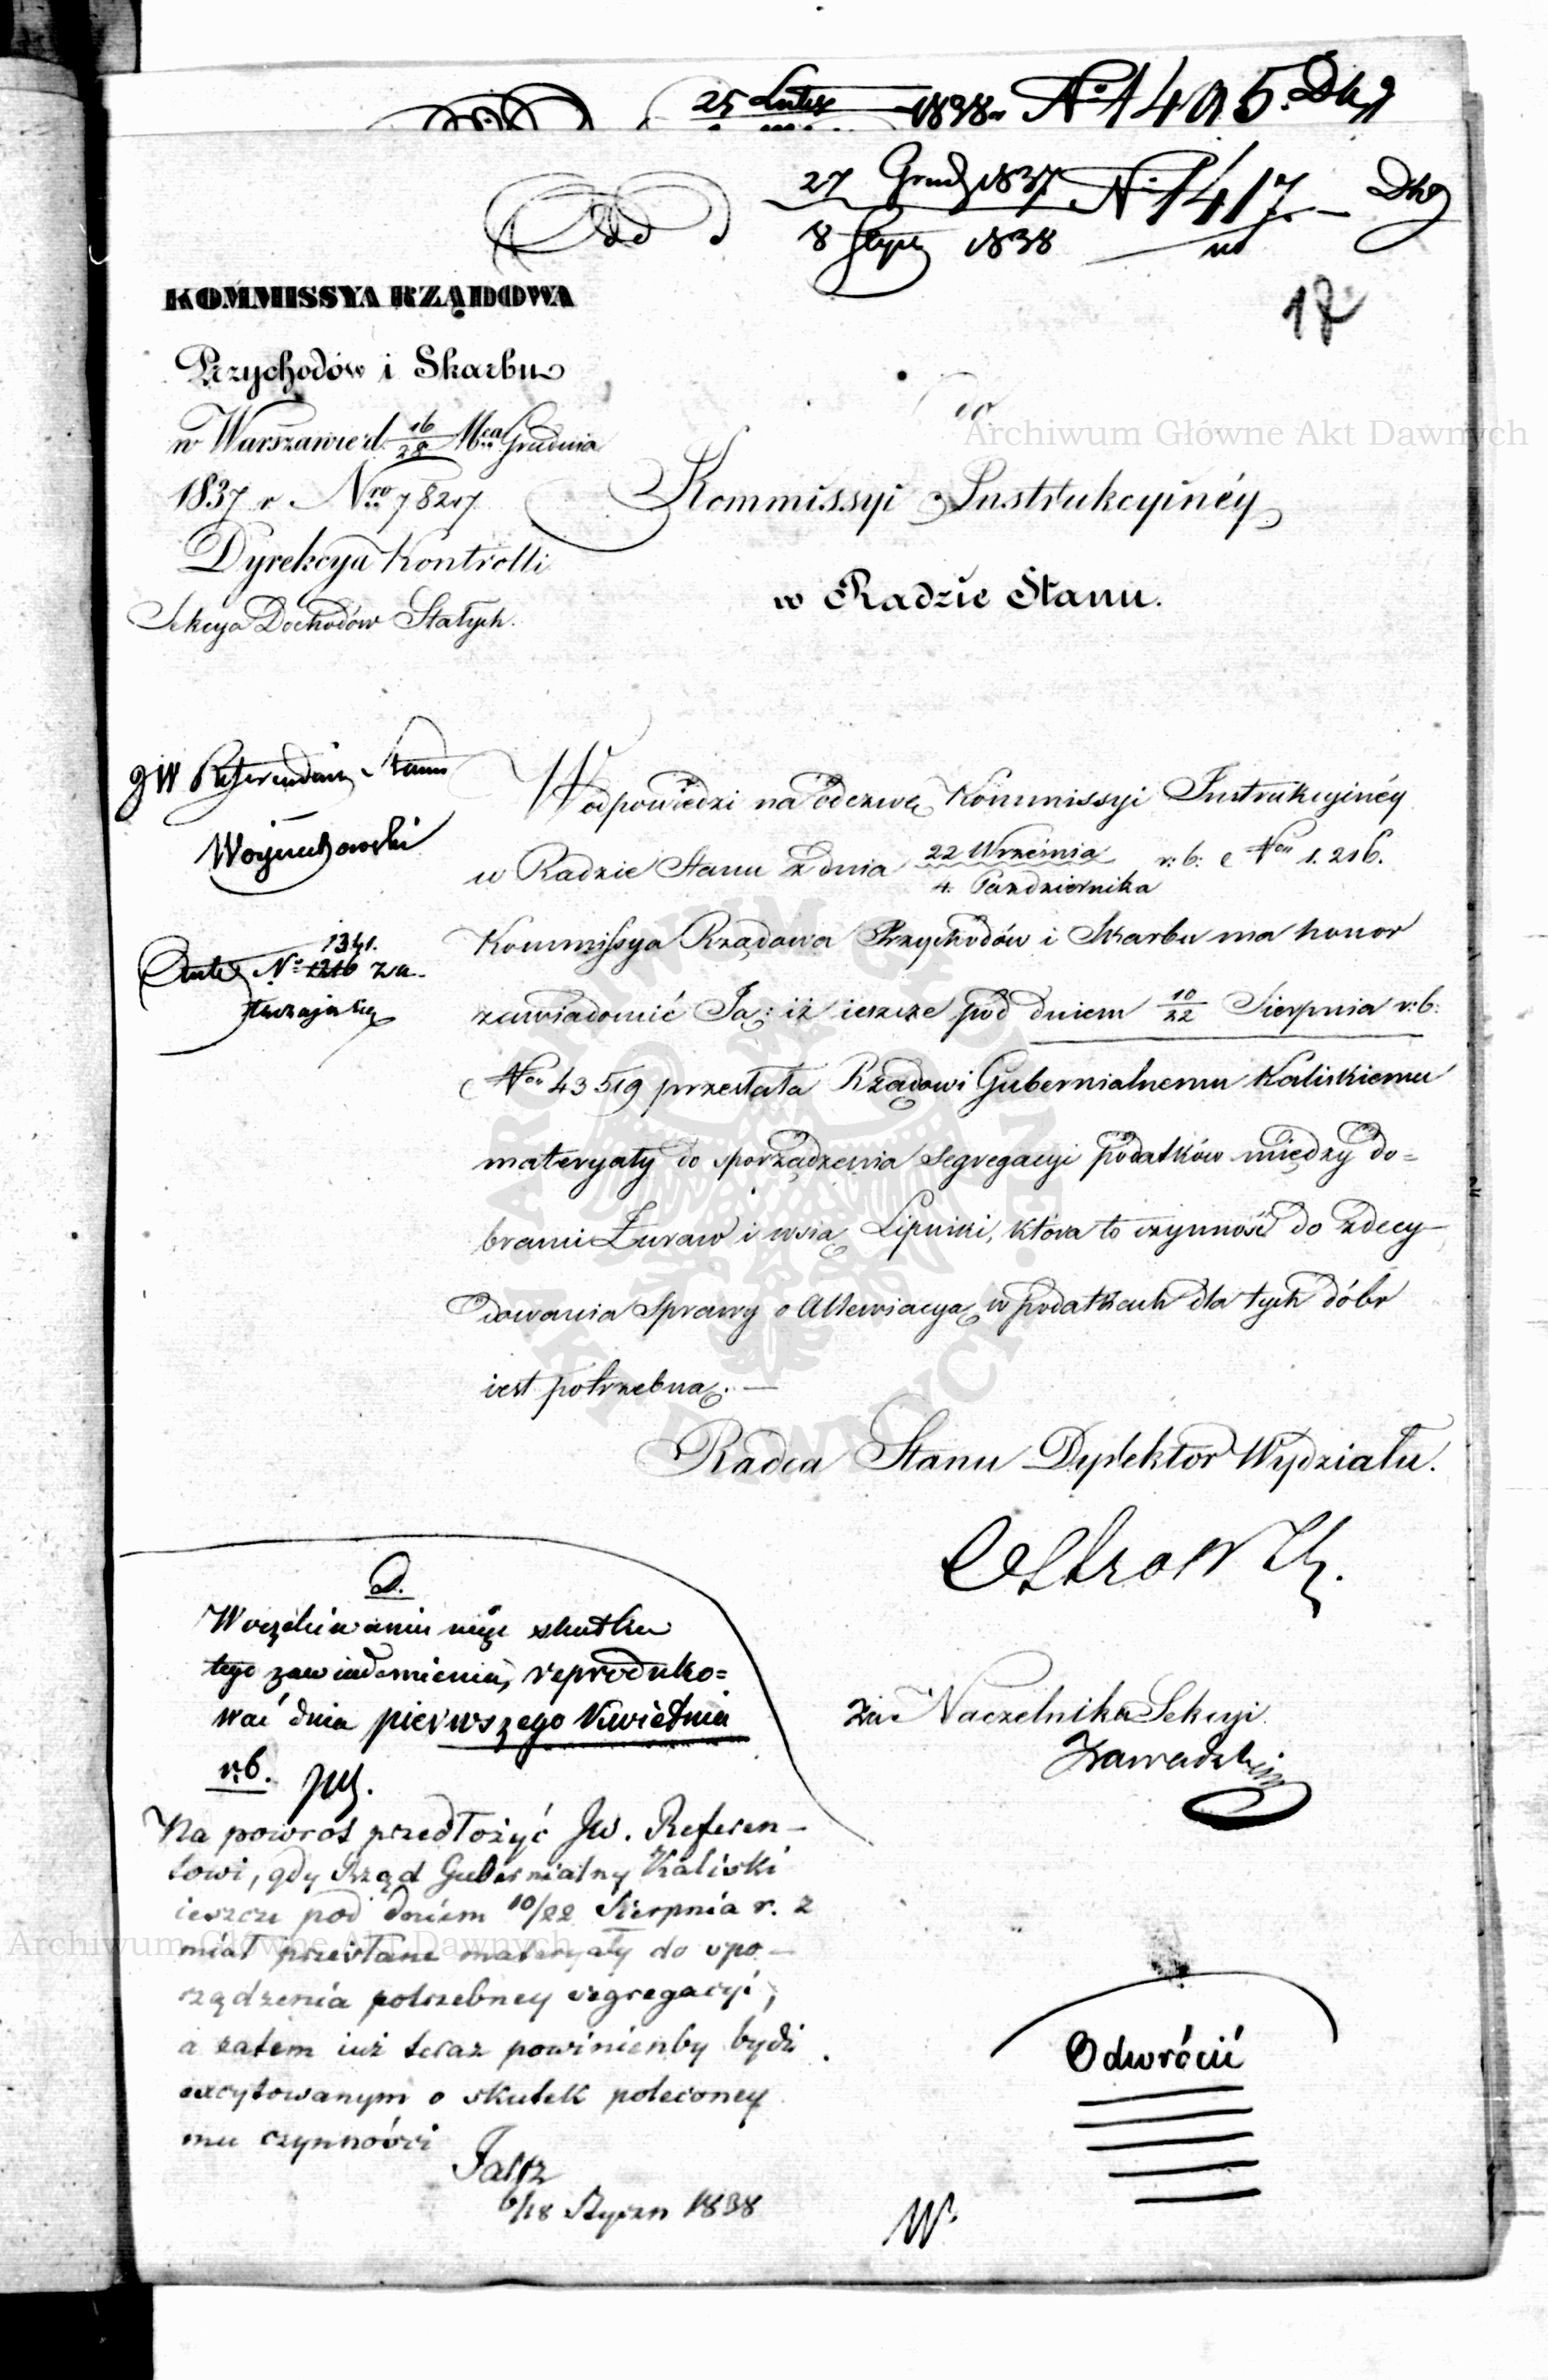 25 Lutego 1838 r. N. 1405. Dkg
27 Grud 1837 N. 1417. — Dkg
8 Stycz 1838
17
KOMMISSYA RZĄDOWA
Przychodów i Skarbu
w Warszawie d. 16/28 Mca Grudnia
1837 r Nro 78217
Dyrekcya Kontrolli
Sekcya Dochodów Stałych.
do
Kommissyi Instrukcyinéy
w Radzie Stanu.
JW Referendarz Stanu
Woyciechowski
1341.
N: 1216 za-
łączają się
W odpowiedzi na odezwę Kommissyi Instrukcyinéy
w Radzie Stanu z dnia 22 Września / 4. Października r: b: Nro 1.216.
Kommissya Rządowa Przychodów i Skarbu ma honor
zawiadomić Ją: iż ieszcze pod dniem 10/22 Sierpnia r: b:
Nro 43519 przesłała Rządowi Gubernialnemu Kaliskiemu
materyały do sporządzenia Segregacyi podatków między do=
brami Żuraw i wsią Lipniki, która to czynność do zdecy-
dowania Sprawy o Allewiacyą w podatkach dla tych dóbr
iest potrzebną. —
Radca Stanu Dyrektor Wydziału.
D.
W oczekiwaniu skutku
tego zawiadomienia, reproduko=
wać dnia pierwszego Kwietnia
r.b.
Za Naczelnika Sekcyi
Zawadzki
Na powrót przedłożyć JW. Referen-
towi, gdy Rząd Gubernialny Kaliski
ieszcze pod dniem 10/22 Sierpnia r. z
miał przesłane materyały do spo-
rządzenia potrzebney segregacyi,
a zatem iuż teraz powinienby bydź
excytowanym o skutek poleconey
mu czynności
6/18 Styczn 1838
Odwrócić
W.
Archiwum Główne Akt Dawnych
Archiwum Główne Akt Dawnych
ARCHIWUM GŁÓWNE AKT DAWNYCH